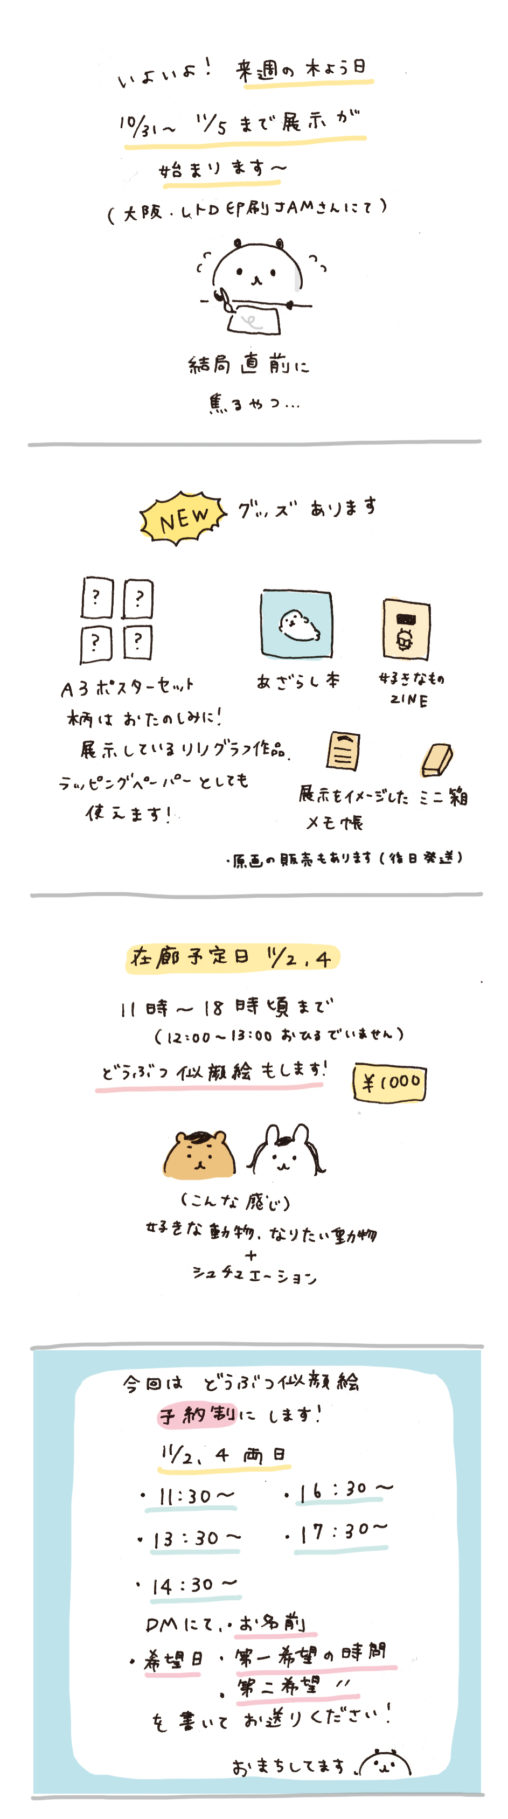 いよいよ! 来週の木よう日
10/31〜 11/5まで展示が
始まります〜
(大阪・レトロ印刷JAMさんにて)
結局直前に
焦るやつ…
NEW グッズあります
? ?
? ?
A3ポスターセット
柄はおたのしみに!
展示しているリソグラフ作品.
ラッピングペーパーとしても
使えます!
あざらし本
好きなもの
ZINE
展示をイメージした
メモ帳
ミニ箱
・原画の販売もあります(後日発送)
在廊予定日 11/2, 4
11時〜18時頃まで
(12:00〜13:00おひるでいません)
どうぶつ似顔絵もします!
¥1000
(こんな感じ)
好きな動物、なりたい動物
+
シュチュエーション
今回は どうぶつ似顔絵
予約制にします!
11/2、4 両日
・11:30〜 ・16:30〜
・13:30〜 ・17:30〜
・14:30〜
DMにて、・お名前
・希望日 ・第一希望の時間
・第二希望 〃
を書いてお送りください!
おまちしてます.